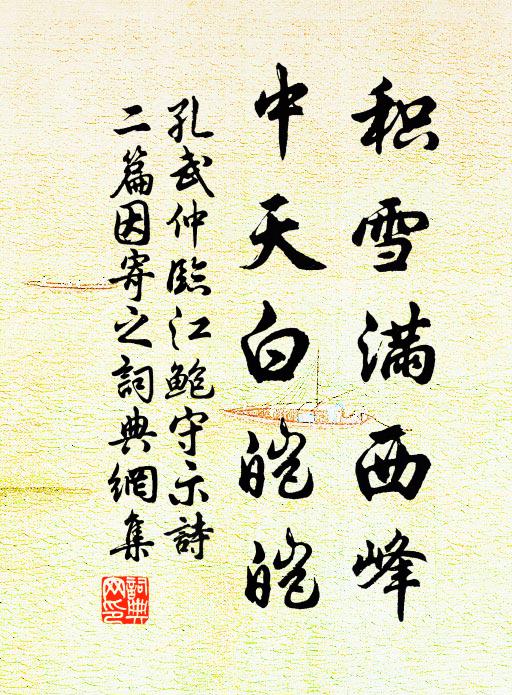 积雪满西峰
中天白皑皑
孔武仲臨江鮑守示詩
二篇因寄之詞典網集
詞典
网印